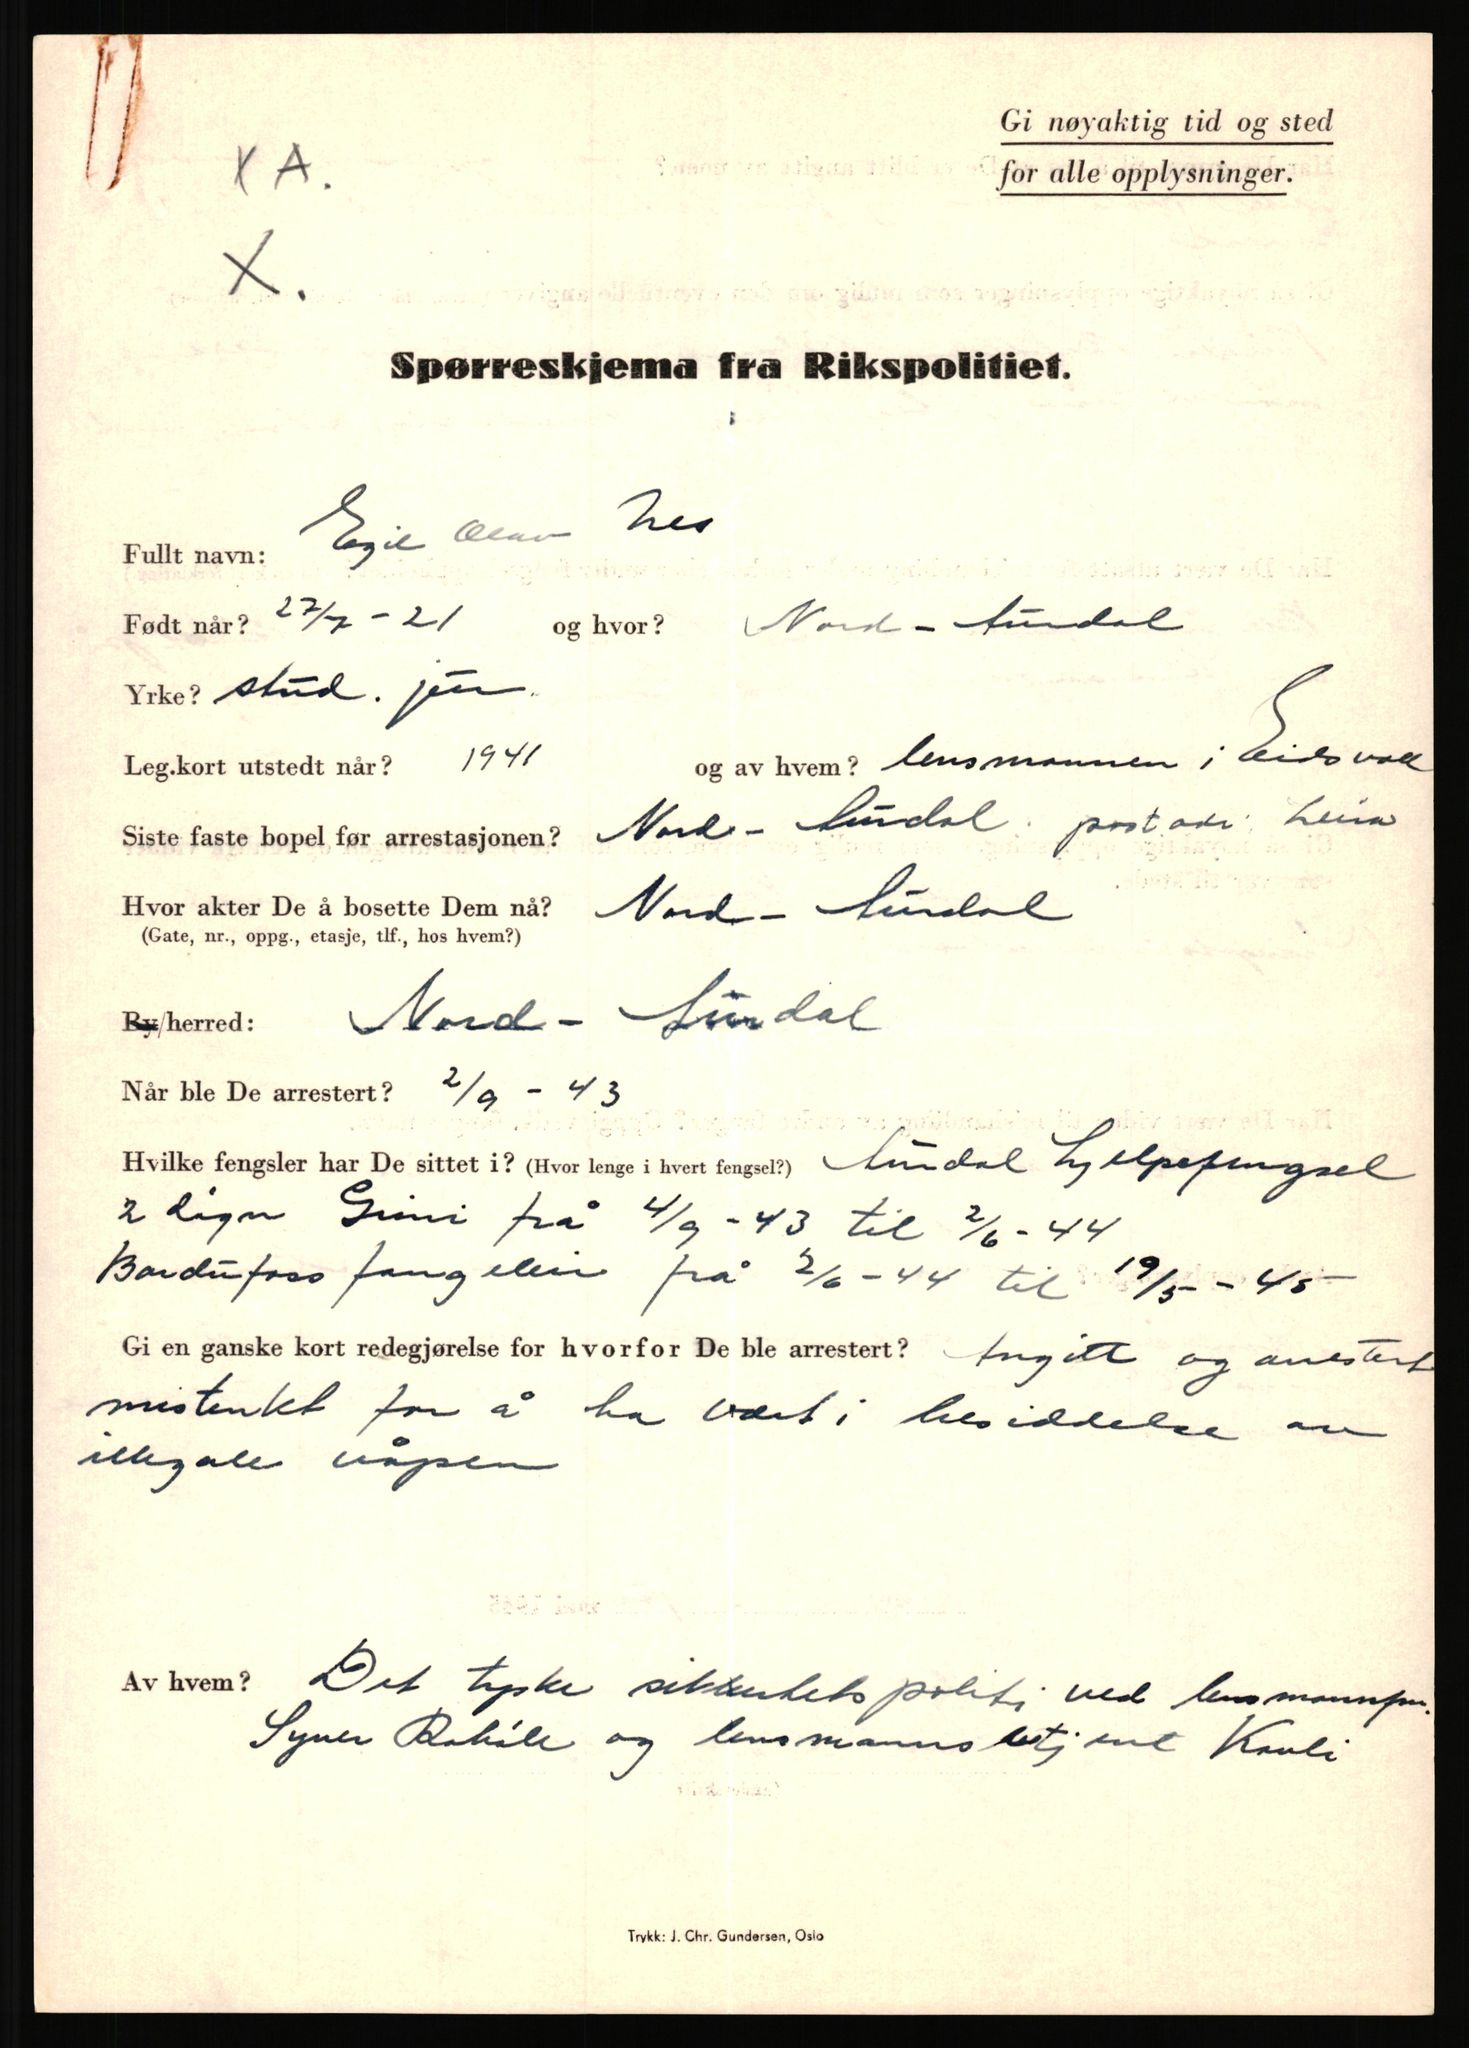 Gi nøyaktig tid og sted
for alle opplysninger.
X A.
X.
Spørreskjema fra Rikspolitiet.
Fullt navn: Egil Olav Nes
Født når? 27/7 - 21 og hvor? Nord - Aurdal
Yrke? stud. jur.
Leg.kort utstedt når? 1941 og av hvem? lensmannen i Eidsvoll
Siste faste bopel før arrestasjonen? Nord - Aurdal. post adr. Leira
Hvor akter De å bosette Dem nå? Nord - Aurdal
(Gate, nr., oppg., etasje, tlf., hos hvem?)
By/herred: Nord - Aurdal
Når ble De arrestert? 2/9 - 43
Hvilke fengsler har De sittet i? (Hvor lenge i hvert fengsel?) Aurdal hjelpefengsel
2 døgn Grini frå 4/9 - 43 til 2/6 - 44
Bardufoss fangeleir frå 2/6 - 44 til 19/5 - 45
Gi en ganske kort redegjørelse for hvorfor De ble arrestert? Angitt og arrestert
mistenkt for å ha vært i besiddelse av
illegale våpen
Av hvem? Det tyske sikkerhetspoliti ved lensmannfm.
Syver og lensmannsbetjent
Trykk: J. Chr. Gundersen, Oslo